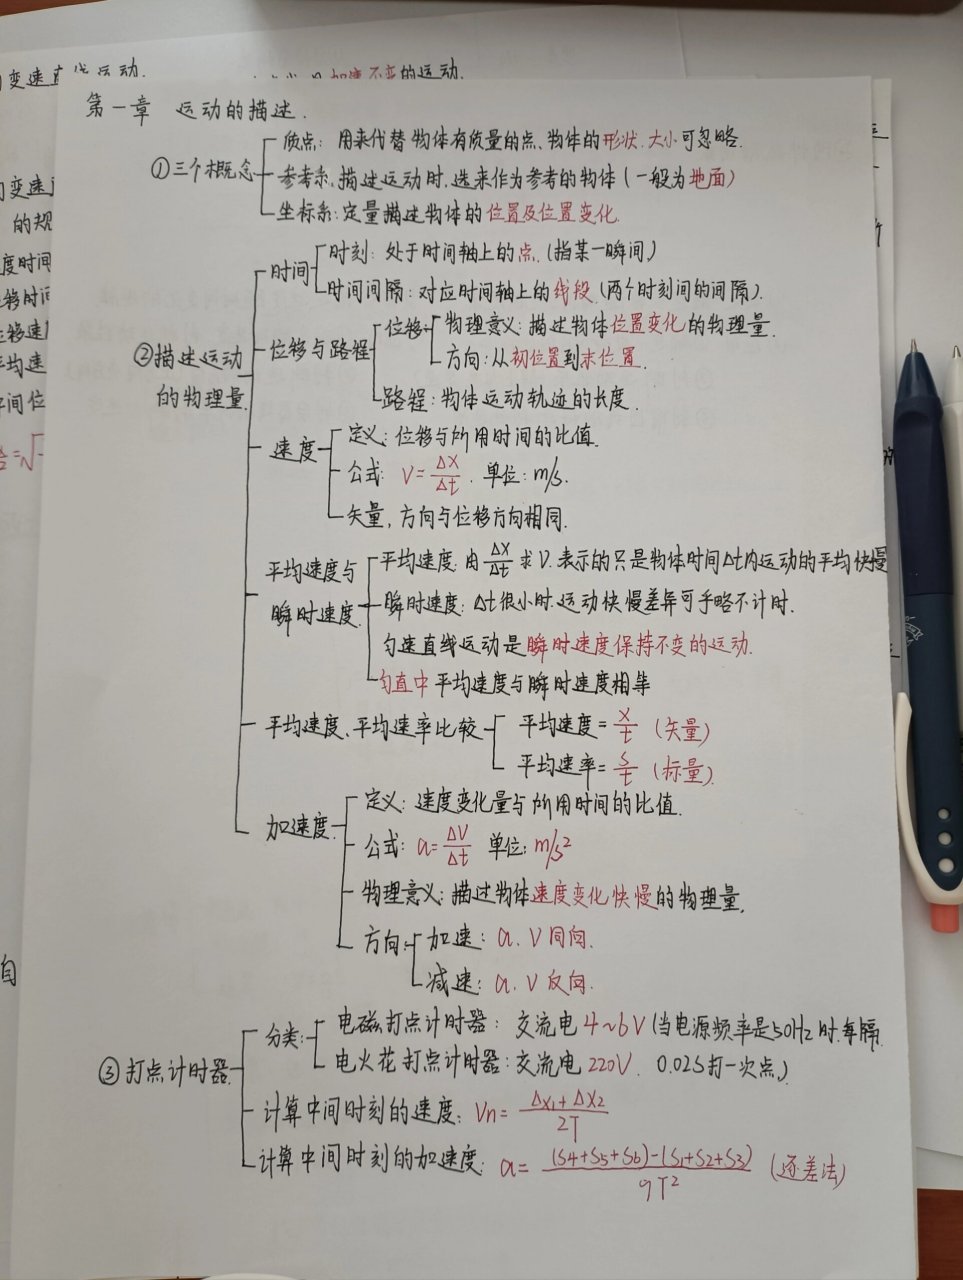 变速直线运动.
加速不变的运动.
第一章 运动的描述.
①三个概念
质点: 用来代替物体有质量的点、物体的形状.大小可忽略.
参考系.描述运动时.选来作为参考的物体(一般为地面)
坐标系:定量描述物体的位置及位置变化.
变速
的规
度时间
移时间
移速
均速
间位
=√
自
②描述运动
的物理量
时间
时刻: 处于时间轴上的点.(指某一瞬间)
时间间隔: 对应时间轴上的线段.(两个时刻间的间隔).
位移与路程
位移
物理意义: 描述物体位置变化的物理量.
方向:从初位置到末位置.
路程:物体运动轨迹的长度.
速度
定义: 位移与所用时间的比值.
公式: V=Δx/Δt. 单位: m/s.
矢量, 方向与位移方向相同.
平均速度与
瞬时速度
平均速度: 由Δx/Δt求V.表示的只是物体时间Δt内运动的平均快慢
瞬时速度: Δt很小时.运动快慢差异可乎略不计时.
匀速直线运动是瞬时速度保持不变的运动.
匀直中平均速度与瞬时速度相等
平均速度、平均速率比较
平均速度=x/t (矢量)
平均速率=s/t (标量).
加速度
定义: 速度变化量与所用时间的比值.
公式: a=ΔV/Δt 单位: m/s²
物理意义: 描过物体速度变化快慢的物理量.
方向:
加速: a. V同向.
减速: a. V反向.
③打点计时器
分类:
电磁打点计时器: 交流电4~6V(当电源频率是50Hz时.每隔
电火花打点计时器: 交流电220V. 0.02S打一次点.)
计算中间时刻的速度: Vn=(Δx₁+Δx₂)/2T
计算中间时刻的加速度: a=((S4+S5+S6)-(S1+S2+S3))/9T² (逐差法)